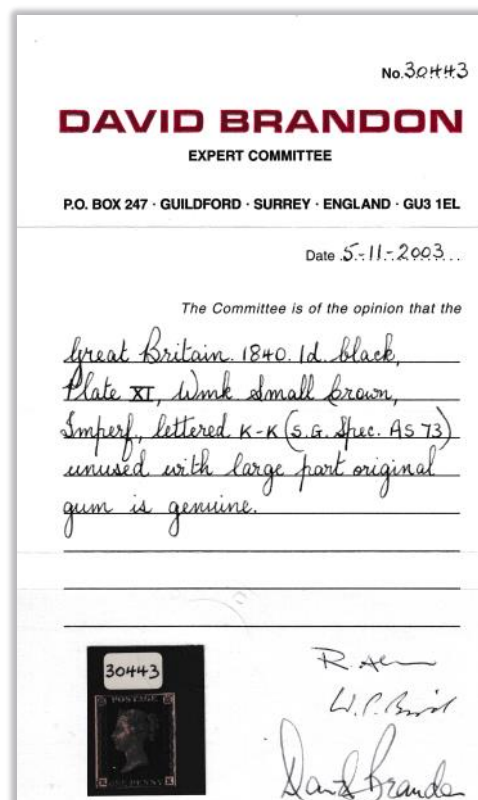 No. 30443
DAVID BRANDON
EXPERT COMMITTEE
P.O. BOX 247 · GUILDFORD · SURREY · ENGLAND · GU3 1EL
Date 5-11-2003
The Committee is of the opinion that the
Great Britain. 1840. 1d. black,
Plate XI, Wmk Small Crown,
Imperf., lettered K-K (S.G. Spec. AS 73)
unused with large part original
gum is genuine.
30443
POSTAGE
K ONE PENNY K
David Brandon